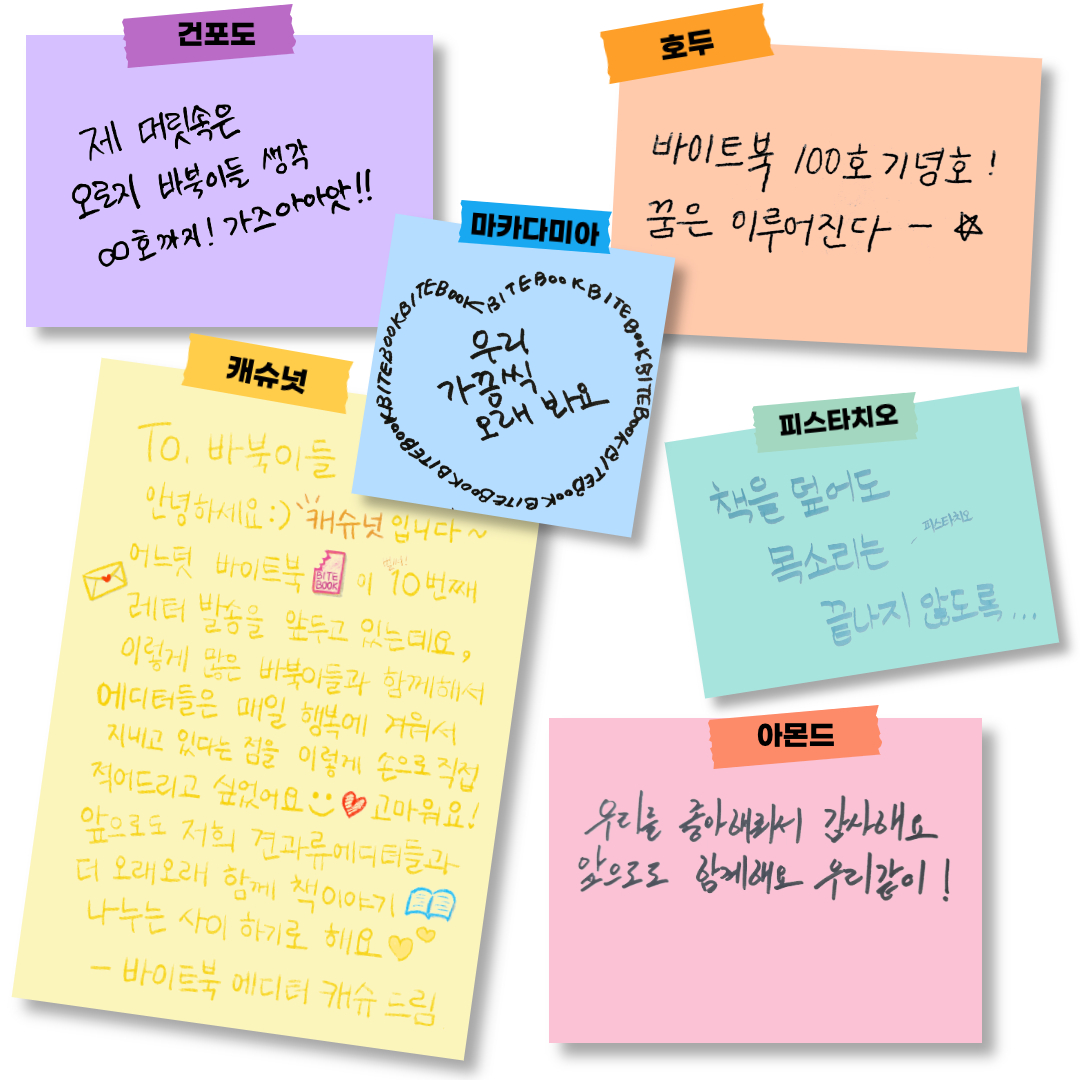 건포도
제 머릿속은
오로지 바북이들 생각
∞호까지! 가즈아아앗!!
호두
바이트북 100호 기념호!
꿈은 이루어진다 - ☆
마카다미아
BITEBOOKBITEBOOKBITEBOOKBITEBOOKBITEBOOKBITEBOOKBITEBOOKBITEBOOKBITEBOOK
우리
가끔씩
오래 봐요
캐슈넛
To. 바북이들
안녕하세요:) 캐슈넛입니다~
어느덧 바이트북 BITE BOOK 이 10번째
벌써!
레터 발송을 앞두고 있는데요,
이렇게 많은 바북이들과 함께해서
에디터들은 매일 행복에 겨워서
지내고 있다는 점을 이렇게 손으로 직접
적어드리고 싶었어요 고마워요!
앞으로도 저희 견과류에디터들과
더 오래오래 함께 책이야기
나누는 사이 하기로 해요
- 바이트북 에디터 캐슈 드림
피스타치오
책을 덮어도
피스타치오
목소리는
끝나지 않도록...
아몬드
우리를 좋아해줘서 감사해요
앞으로도 함께해요 우리같이!